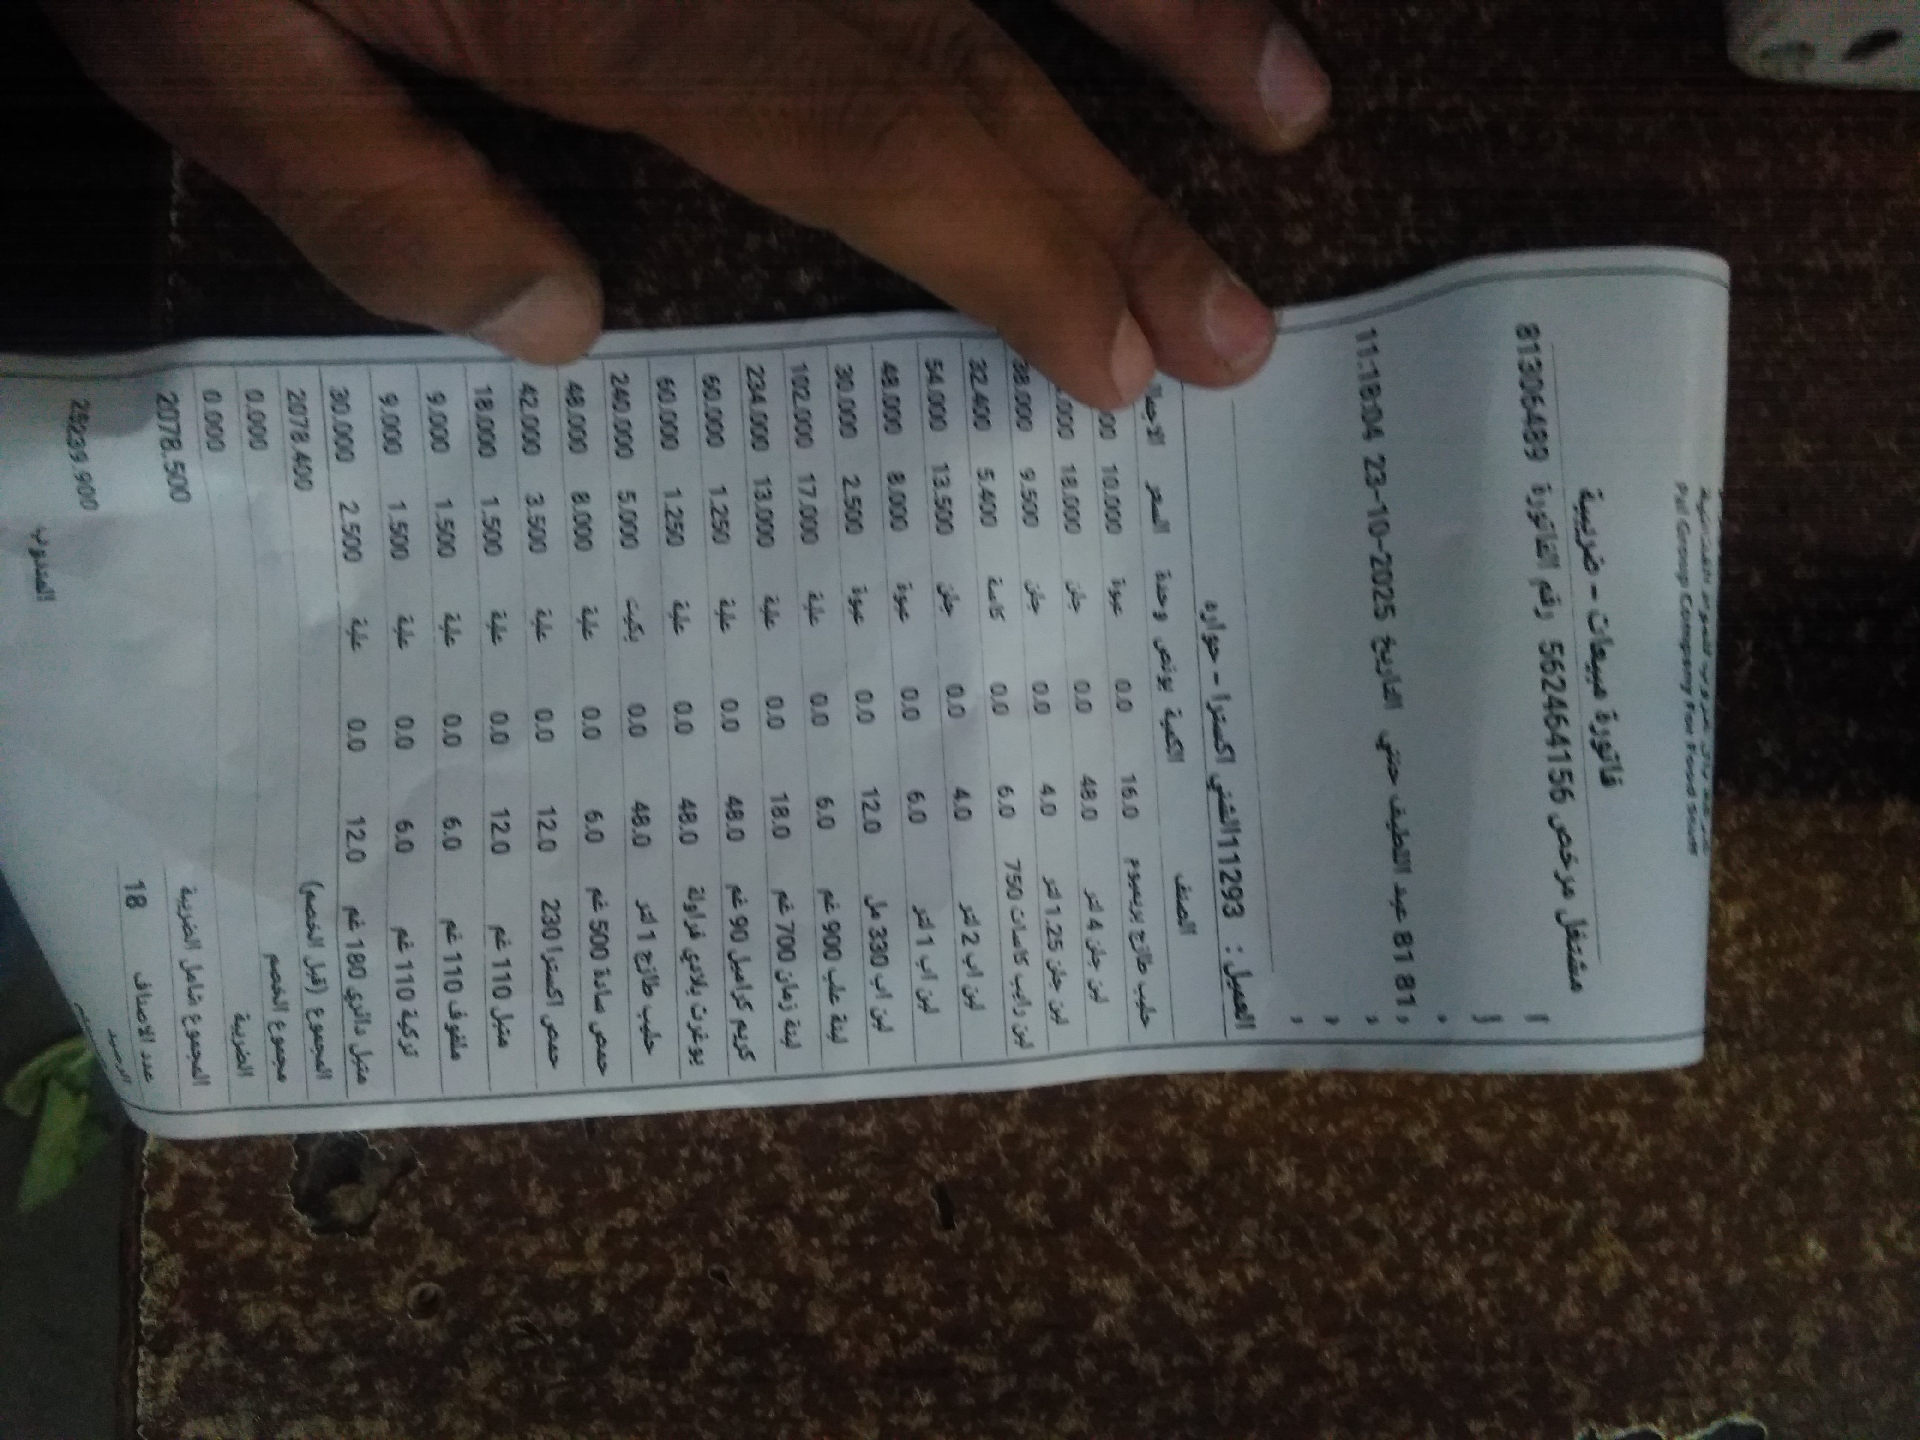 Pal Group Company For Food Stuff
فاتورة مبيعات - ضريبية
مشتغل مرخص 562464156 رقم الفاتورة 81306489
81 81 عبد اللطيف حنني التاريخ 23-10-2025 11:18:04
العميل : 11293الشني اكسترا - حواره
الصنف الكمية بونص وحدة السعر
حليب طازج بريميوم 16.0 0.0 عبوة 10.000
لبن جلن 4 لتر 48.0 0.0 جلن 18.000
لبن جلن 1.25 لتر 4.0 0.0 جلن 9.500
لبن رايب كاسات 750 6.0 0.0 كاسة 5.400 32.400
لبن اب 2 لتر 4.0 0.0 جلن 13.500 54.000
لبن اب 1 لتر 6.0 0.0 عبوة 8.000 48.000
لبن اب 330 مل 12.0 0.0 عبوة 2.500 30.000
لبنة علب 900 غم 6.0 0.0 علبة 17.000 102.000
لبنة زمان 700 غم 18.0 0.0 علبة 13.000 234.000
كريم كراميل 90 غم 48.0 0.0 علبة 1.250 60.000
يوغرت بلادي فراولة 48.0 0.0 علبة 1.250 60.000
حليب طازج 1 لتر 48.0 0.0 بكيت 5.000 240.000
حمص سادة 500 غم 6.0 0.0 علبة 8.000 48.000
حمص اكسترا 230 12.0 0.0 علبة 3.500 42.000
متبل 110 غم 12.0 0.0 علبة 1.500 18.000
ملفوف 110 غم 6.0 0.0 علبة 1.500 9.000
تركية 110 غم 6.0 0.0 علبة 1.500 9.000
متبل دائري 180 غم 12.0 0.0 علبة 2.500 30.000
المجموع (قبل الخصم) 2078.400
مجموع الخصم 0.000
الضريبة 0.000
المجموع شامل الضريبة 2078.500
عدد الاصناف 18
الرصيد
المندوب